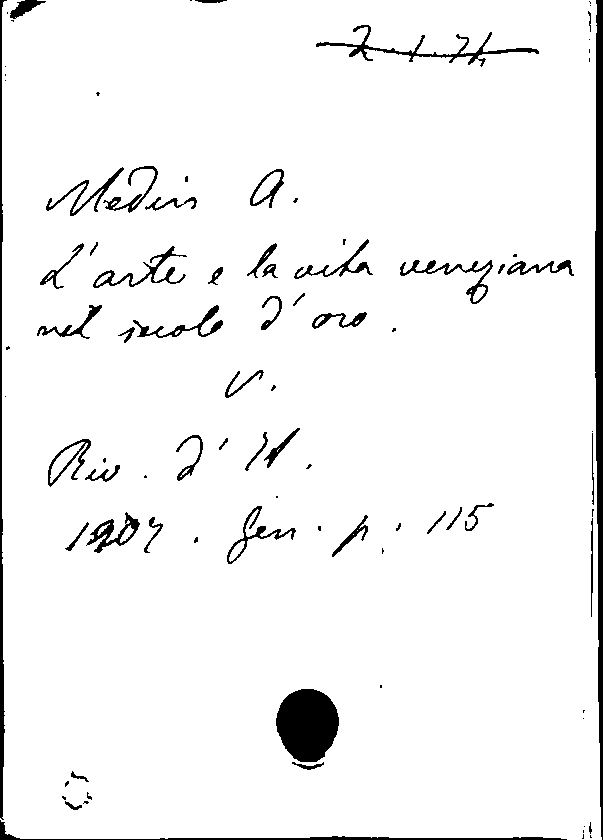 2.1.71
Medin A.
L'arte e la vita veneziana
nel secolo d'oro.
V.
Riv. d'It.
1907. Gen. p. 115